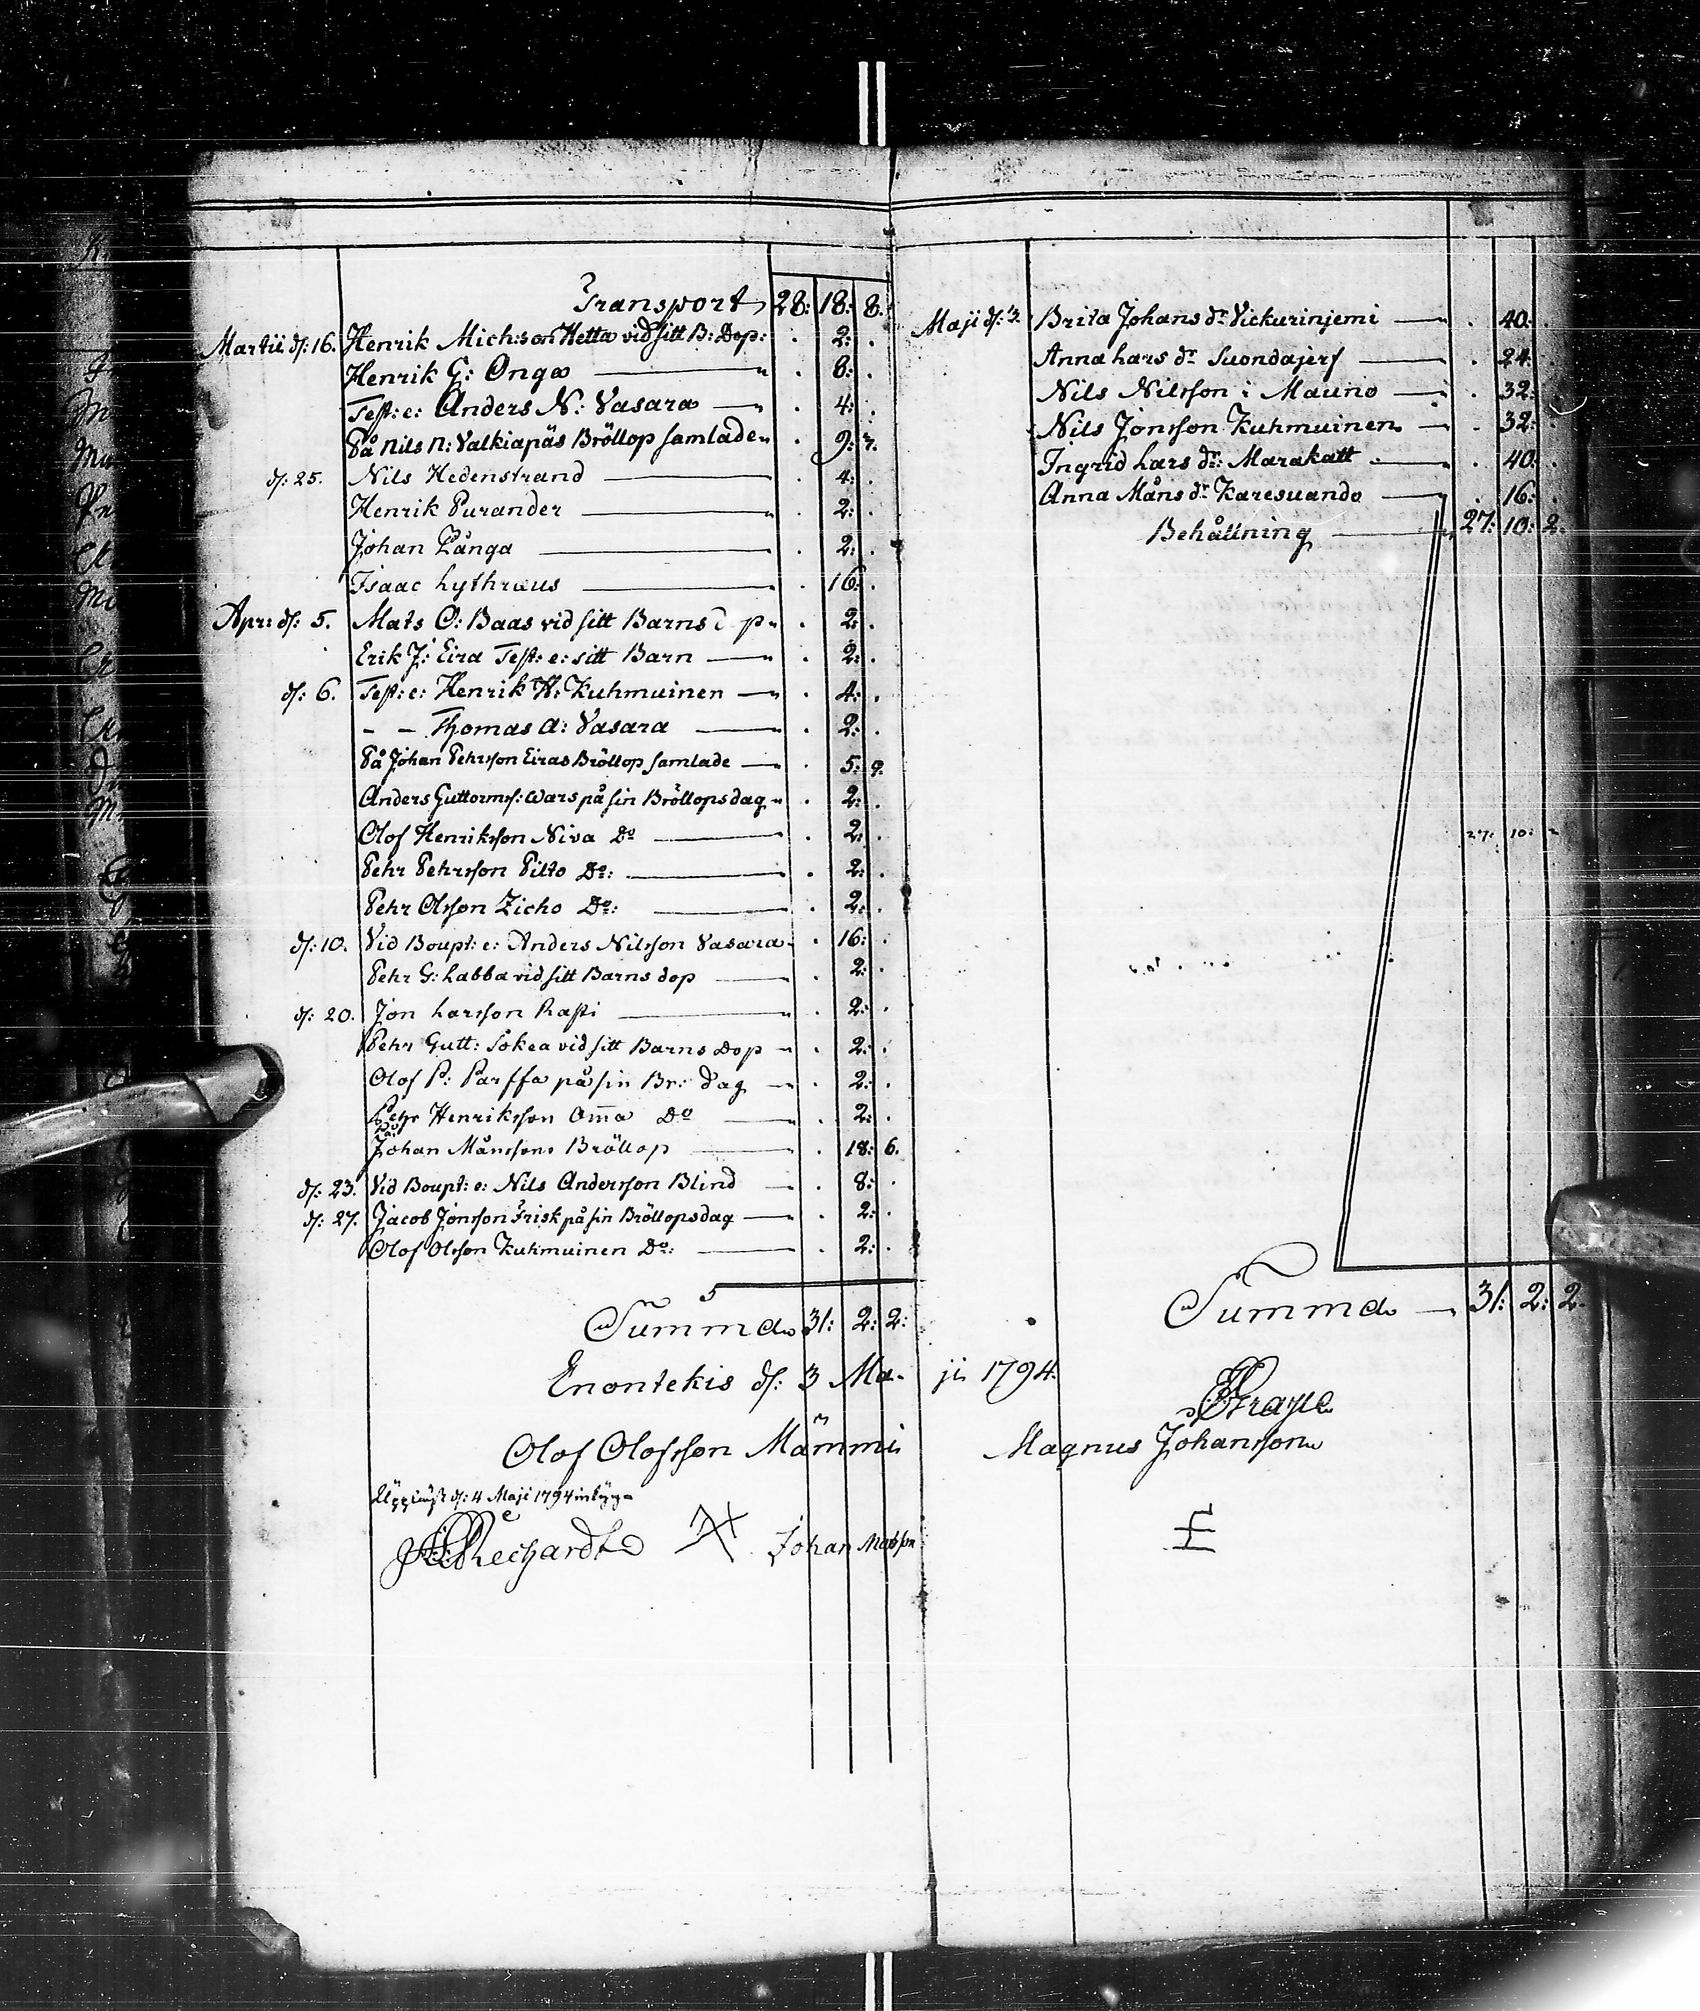 Transport 28: 18: 8.
Martii d: 16. Henrik Mich:son Hetta vid sitt B: Dop: . 2: .
Henrik G: Onga . 8: .
Test: e: Anders N: Vasara . 4: .
På Nils N: Valkiapäs Bröllop samlade . 9: 7.
d: 25. Nils Hedenstrand . 4: .
Henrik Purander . 2: .
Johan Långa . 2: .
Isaac Lythraeus . 16: .
Apr: d: 5. Mats O: Baas vid sitt Barns d p . 2: .
Erik J: Eira Test: e: sitt Barn . 2: .
d: 6. Test: e: Henrik H: Kuhmuinen . 4: .
- - Thomas A: Vasara . 2: .
På Johan Pehrsson Eiras Bröllop samlade . 5: 9.
Anders Guttorms: Wars på sin Bröllopsdag . 2: .
Olof Henriksson Niva Do . 2: .
Pehr Pehrsson Pilto Do: . 2: .
Pehr Olsson Zicho Do: . 2: .
d: 10. Vid Boupt: e: Anders Nilsson Vasara . 16: .
Pehr G: Labba vid sitt Barns dop . 2: .
d: 20. Jon Larsson Rasti . 2: .
Pehr Gutt: Sokea vid sitt Barns Dop . 2: .
Olof P: Parffa på sin Br: dag . 2: .
Pehr Henriksson Om̄a Do . 2: .
På
Johan Månssons Bröllop . 18: 6.
d: 23. Vid Boupt: e: Nils Andersson Blind . 8: .
d: 27. Jacob Jönsson Frisk på sin Bröllopsdag . 2: .
Olof Olsson Kuhmuinen Do: . 2: .
Summa 31: 2: 2:
Maji d: 3. Brita Johans dr Vickurinjemi . 40: .
Anna Lars dr Suondajerf . 24: .
Nils Nilsson i Mauno . 32: .
Nils Jönsson Kuhmuinen . 32: .
Ingrid Lars dr: Marakatt . 40: .
Anna Måns dr Karesuando . 16: .
Behållning 27: 10: 2.
27: 10: 2
Summa 31: 2: 2.
Enontekis d: 3 Maji 1794.
Grape
Olof Olofsson Mämmi Magnus Johansson
d: 4 Maji 1794
Johan Matsson